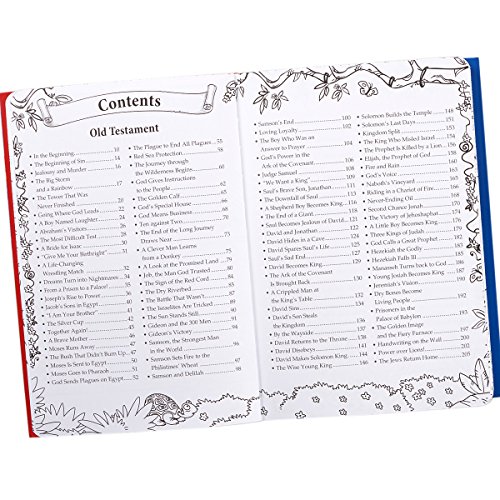 Contents
Old Testament
• In the Beginning.....................10
• The Beginning of Sin...............14
• Jealousy and Murder..............16
• The Big Storm
and a Rainbow.......................17
• The Tower That Was
Never Finished.......................22
• Going Where God Leads........24
• A Boy Named Laughter
• Abraham's Visitors
• The Most Difficult Test
• A Bride for Isaac
• "Give Me Your Birthright"
• A Life-Changing
Wrestling Match
• Dreams Turn into Nightmares
• From a Prison to a Palace!
• Joseph's Rise to Power
• Jacob's Sons in Egypt
• "I Am Your Brother"
• The Silver Cup
• Together Again!
• A Brave Mother
• Moses Runs Away
• The Bush That Didn't Burn Up
• Moses Is Sent to Egypt
• Moses Goes to Pharaoh............51
• God Sends Plagues on Egypt.....52
• The Plague to End All Plagues...55
• Red Sea Protection..................58
• The Journey through
the Wilderness Begins............60
• God Gives Instructions
to the People
• The Golden Calf
• God's Special House
• God Means Business
• Ten against Two
• The End of the Long Journey
Draws Near
• A Clever Man Learns
from a Donkey
• A Look at the Promised Land
• Job, the Man God Trusted
• The Sign of the Red Cord
• The Dry Riverbed
• The Battle That Wasn't
• The Israelites Are Tricked
• The Sun Stands Still
• Gideon and the 300 Men
• Gideon's Victory
• Samson, the Strongest Man
in the World
• Samson Sets Fire to the
Philistines' Wheat
• Samson and Delilah................98
• Samson's End.......................100
• Loving Loyalty.....................102
• The Boy Who Was an
Answer to Prayer.................104
• God's Power in the
Ark of the Covenant
• Judge Samuel
• "We Want a King"
• Saul's Brave Son, Jonathan
• The Downfall of Saul
• A Shepherd Boy Becomes King
• The End of a Giant
• Saul Becomes Jealous of David
• David and Jonathan
• David Hides in a Cave
• David Spares Saul's Life
• Saul's Sad End
• David Becomes King
• The Ark of the Covenant
Is Brought Back
• A Crippled Man at
the King's Table
• David Sins
• David's Son Steals
the Kingdom
• By the Wayside
• David Returns to the Throne
• David Disobeys
• David Makes Solomon King
• The Wise Young King
• Solomon Builds the Temple.....148
• Solomon's Last Days.............151
• Kingdom Split.......................153
• The King Who Misled Israel.....154
• The Prophet Is Killed by a Lion
• Elijah, the Prophet of God
• Fire and Rain
• God's Voice
• Naboth's Vineyard
• Riding in a Chariot of Fire
• Never-Ending Oil
• Second Chance Jonah
• The Victory of Jehoshaphat
• A Little Boy Becomes King
• Three Kings of Judah
• God Calls a Great Prophet
• Hezekiah the Good
• Hezekiah Falls Ill
• Manasseh Turns back to God
• Young Josiah Becomes King
• Jeremiah's Vision
• Dry Bones Become
Living People
• Prisoners in the
Palace of Babylon
• The Golden Image
and the Fiery Furnace
• Handwriting on the Wall
• Power over Lions!
• The Jews Return Home.........205